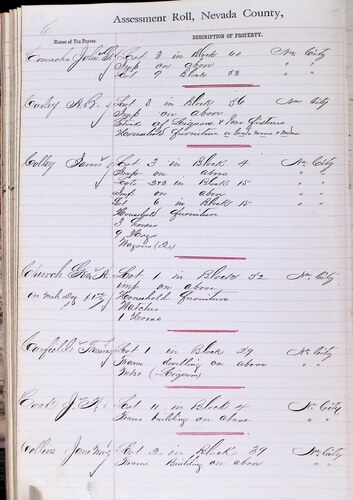 Assessment Roll, Nevada County,
Names of Tax Payers. DESCRIPTION OF PROPERTY.
Lot 3 in Block 60 Nev City
Imp on above " "
Lot 9 Block 58 " "
Lot 3 in Block 56 Nev City
Imp on above
Stock of Liquors & Bar Fixtures
Household furniture
Colley James Lot 2 in Block 4 Nev City
Imp on above " "
Lots 2 & 3 in Block 15 " "
Imp on above " "
Lot 6 in Block 15 " "
Household furniture
3 horses
9 Hogs
Wagons (2)
Church Lot 1 in Block 52 Nev City
Imp on above
Household furniture
Watches
1 Horse
Lot 1 in Block 29 Nev City
Frame dwelling on above " "
Mdse (Liquors)
Lot 11 in Block 4 Nev City
Frame building on above " "
Collins Lot 2 in Block 39 Nev City
Frame Building on above " "